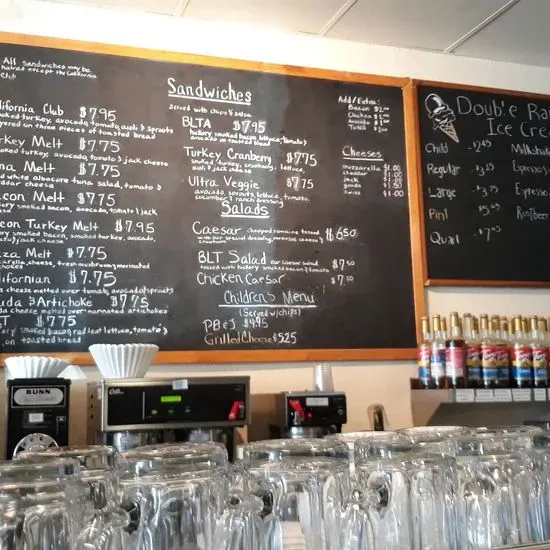 All sandwiches may be
halved except the California
Club
California Club $7.95
smoked turkey, avocado, tomato, aioli & sprouts
layered on three pieces of toasted bread
Turkey Melt $7.75
smoked turkey, avocado, tomato & jack cheese
Tuna Melt $7.75
white albacore tuna salad, tomato &
cheddar cheese
Bacon Melt $7.75
smoked bacon, avocado, tomato & jack
cheese
Bacon Turkey Melt $7.95
smoked bacon, smoked turkey, avocado,
tomato & jack cheese
Pizza Melt $7.75
mozzarella cheese, fresh mushrooms, marinated
artichokes
Californian $7.75
cheese melted over tomato, avocado & sprouts
Gouda & Artichoke $7.75
gouda cheese melted over marinated artichokes
BLT $7.75
hickory smoked bacon, red leaf lettuce, tomato &
on toasted bread
Sandwiches
Served with chips & salsa
BLTA $7.95
hickory smoked bacon, lettuce, tomato &
avocado on toasted bread
Turkey Cranberry $7.75
smoked turkey, cranberry, lettuce,
Ultra Veggie $7.75
avocado, sprouts, lettuce, tomato,
cucumber & ranch dressing
Salads
Caesar chopped romaine tossed $6.50
with our special dressing, parmesan cheese &
croutons
BLT Salad our Caesar salad $7.50
tossed with hickory smoked bacon & tomato
Chicken Caesar $7.50
Children's Menu
(Served w/chips)
PB & J $4.95
Grilled Cheese $5.25
Add/Extra:
Bacon $2.00
Chicken $2.00
Avocado $1.00
Tuna $2.00
Cheeses
mozzarella $1.00
cheddar $1.00
jack $1.00
gouda $1.50
swiss $1.50
Double Ra
Ice Cre
Child $2.45
Regular $3.25
Large $3.75
Pint $5.65
Quart $7.65
Milkshak
Espress
Espress
Rootbeer
BUNN
Torani